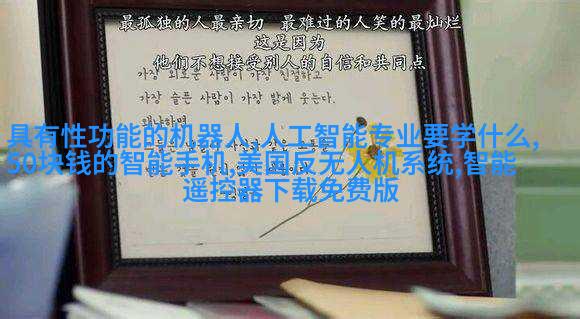 最孤独的人最亲切 最难过的人笑的最灿烂
这是因为
他们不想接受别人的自信和共同点
가장 외로운 사람이 가장 친절하고
가장 슬픈 사람이 가장 밝게 웃는다.
왜냐하면
具有性功能的机器人,人工智能专业要学什么,
50块钱的智能手机,美国反无人机系统,智能
遥控器下载免费版